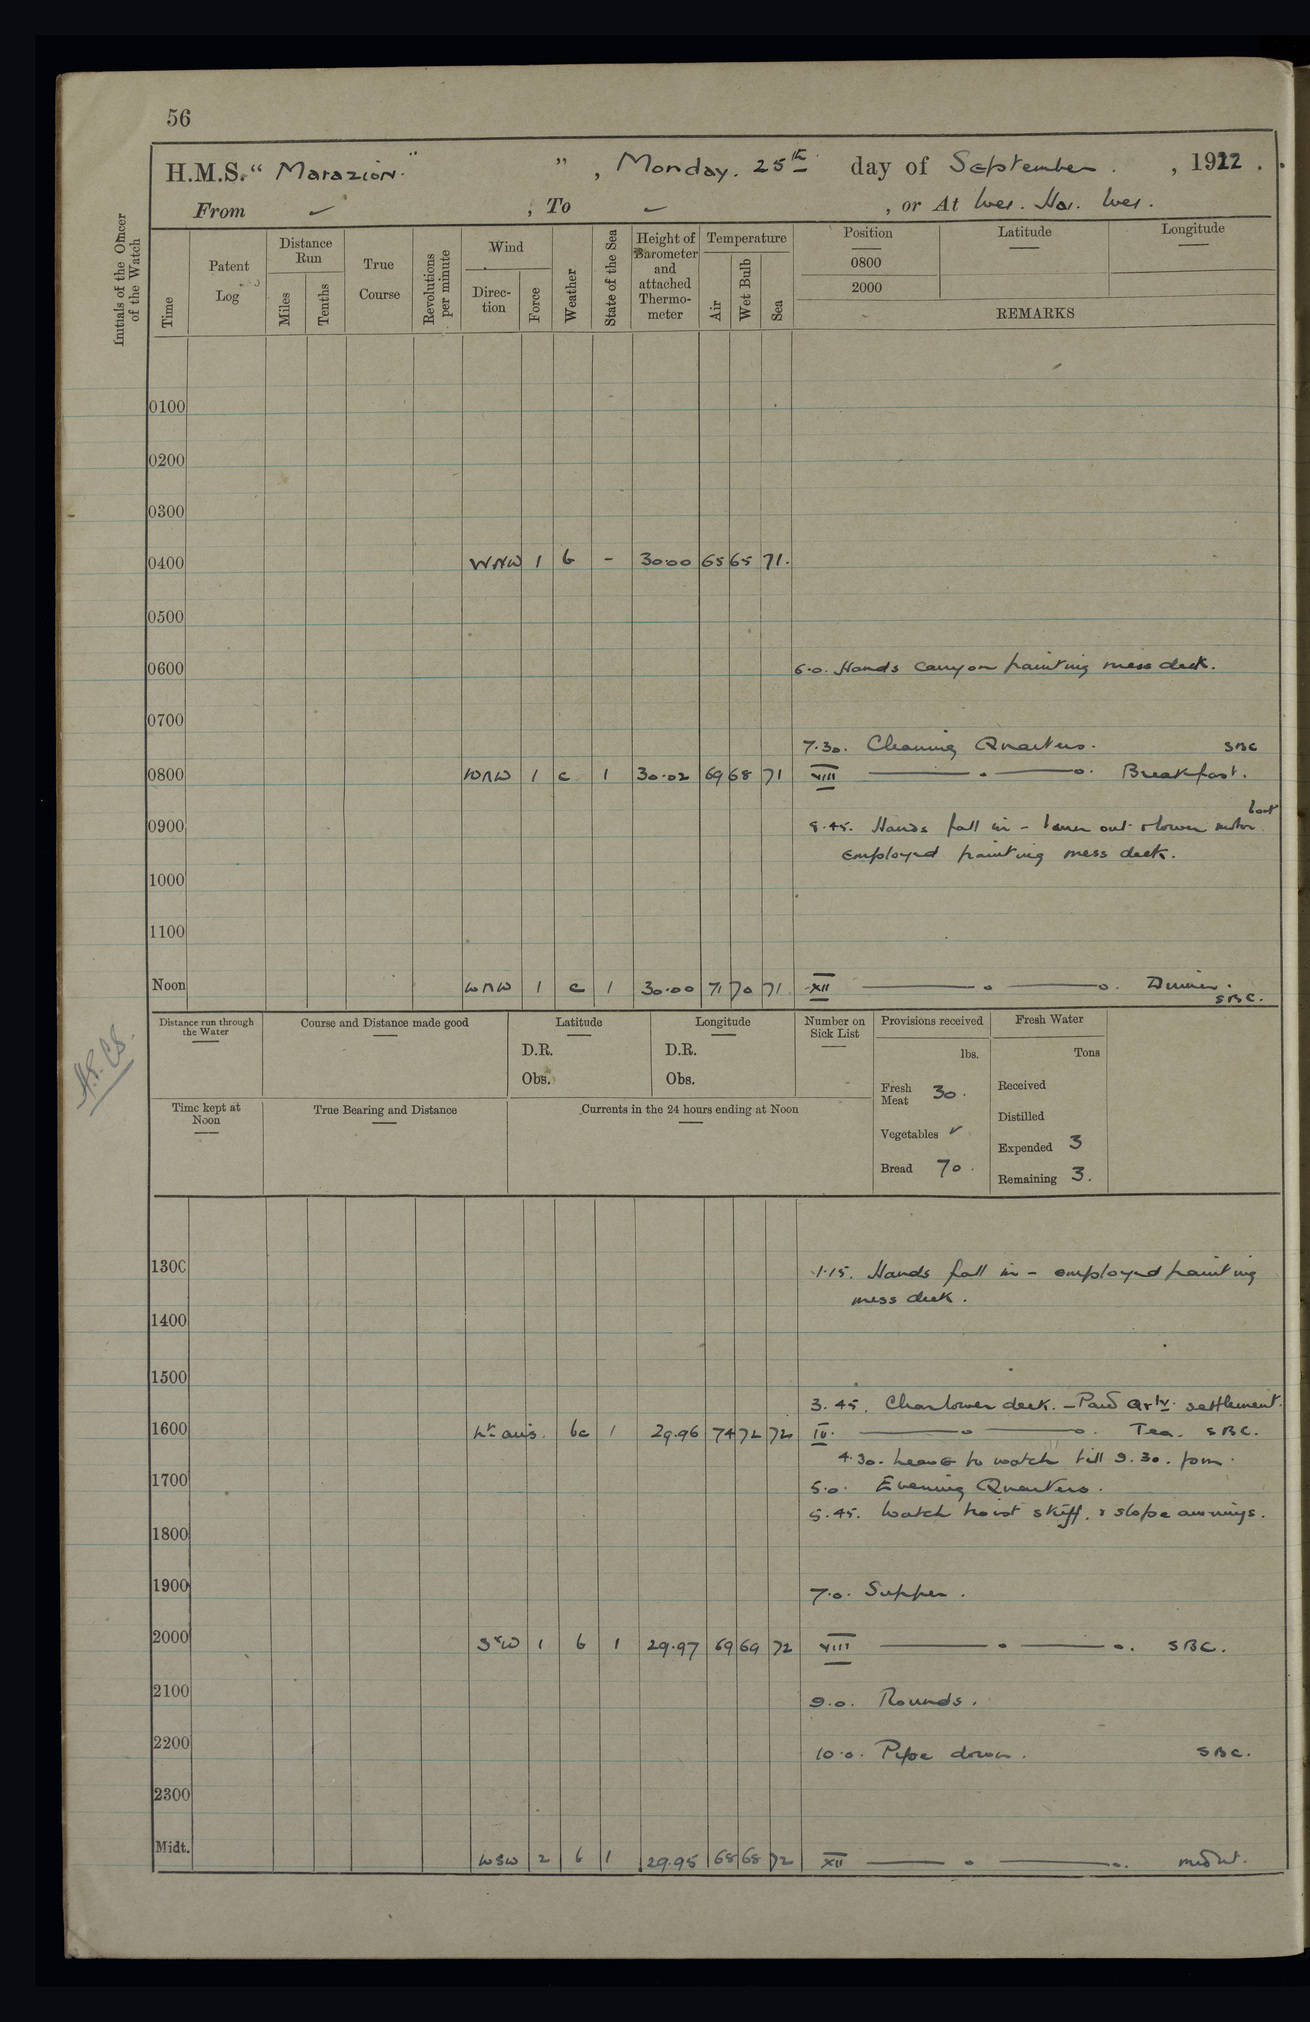 56
H.M.S. "Marazion." ", Monday. 25th day of September. , 1922.
From ✓ , To ✓ , or At Wei. Hai. Wei.
Initials of the Officer of the Watch
Time
Patent Log
Distance Run
Miles
Tenths
True Course
Revolutions per minute
Wind
Direc-tion
Force
Weather
State of the Sea
Height of Barometer and attached Thermo-meter
Temperature
Air
Wet Bulb
Sea
Position
0800
2000
Latitude
Longitude
REMARKS
0100
0200
0300
0400 WNW 1 b - 30.00 65 65 71.
0500
0600 6.0. Hands carry on painting mess deck.
0700
7.30. Cleaning Quarters. SBC
0800 WNW 1 c 1 30.02 69 68 71 VIII ——— o ——— o. Breakfast.
0900 8.45. Hands fall in - out & lower motor boat
employed painting mess deck.
1000
1100
Noon WNW 1 c 1 30.00 71 70 71 XII ——— o ——— o. Dinner.
SBC.
Distance run through the Water
Course and Distance made good
Latitude
D.R.
Obs.
Longitude
D.R.
Obs.
Number on Sick List
Provisions received
lbs.
Fresh Meat 30.
Vegetables ✓
Bread 70.
Fresh Water
Tons
Received
Distilled
Expended 3
Remaining 3.
Time kept at Noon
True Bearing and Distance
Currents in the 24 hours ending at Noon
1300 1.15. Hands fall in - employed painting
mess deck.
1400
1500
3.45. Clear lower deck. - Paid Qrly. settlement.
1600 Lt airs. bc 1 29.96 74 72 72 IV. ——— o ——— o. Tea. SBC.
4.30. leave to watch till 9.30. pm.
1700 5.0. Evening Quarters.
5.45. Watch hoist skiff, & slope awnings.
1800
1900 7.0. Supper.
2000 SW 1 b 1 29.97 69 69 72 VIII ——— o ——— o. SBC.
2100 9.0. Rounds.
2200 10.0. Pipe down. SBC.
2300
Midt. WSW 2 b 1 29.95 68 68 72 XII ——— o ——— o. midnt.